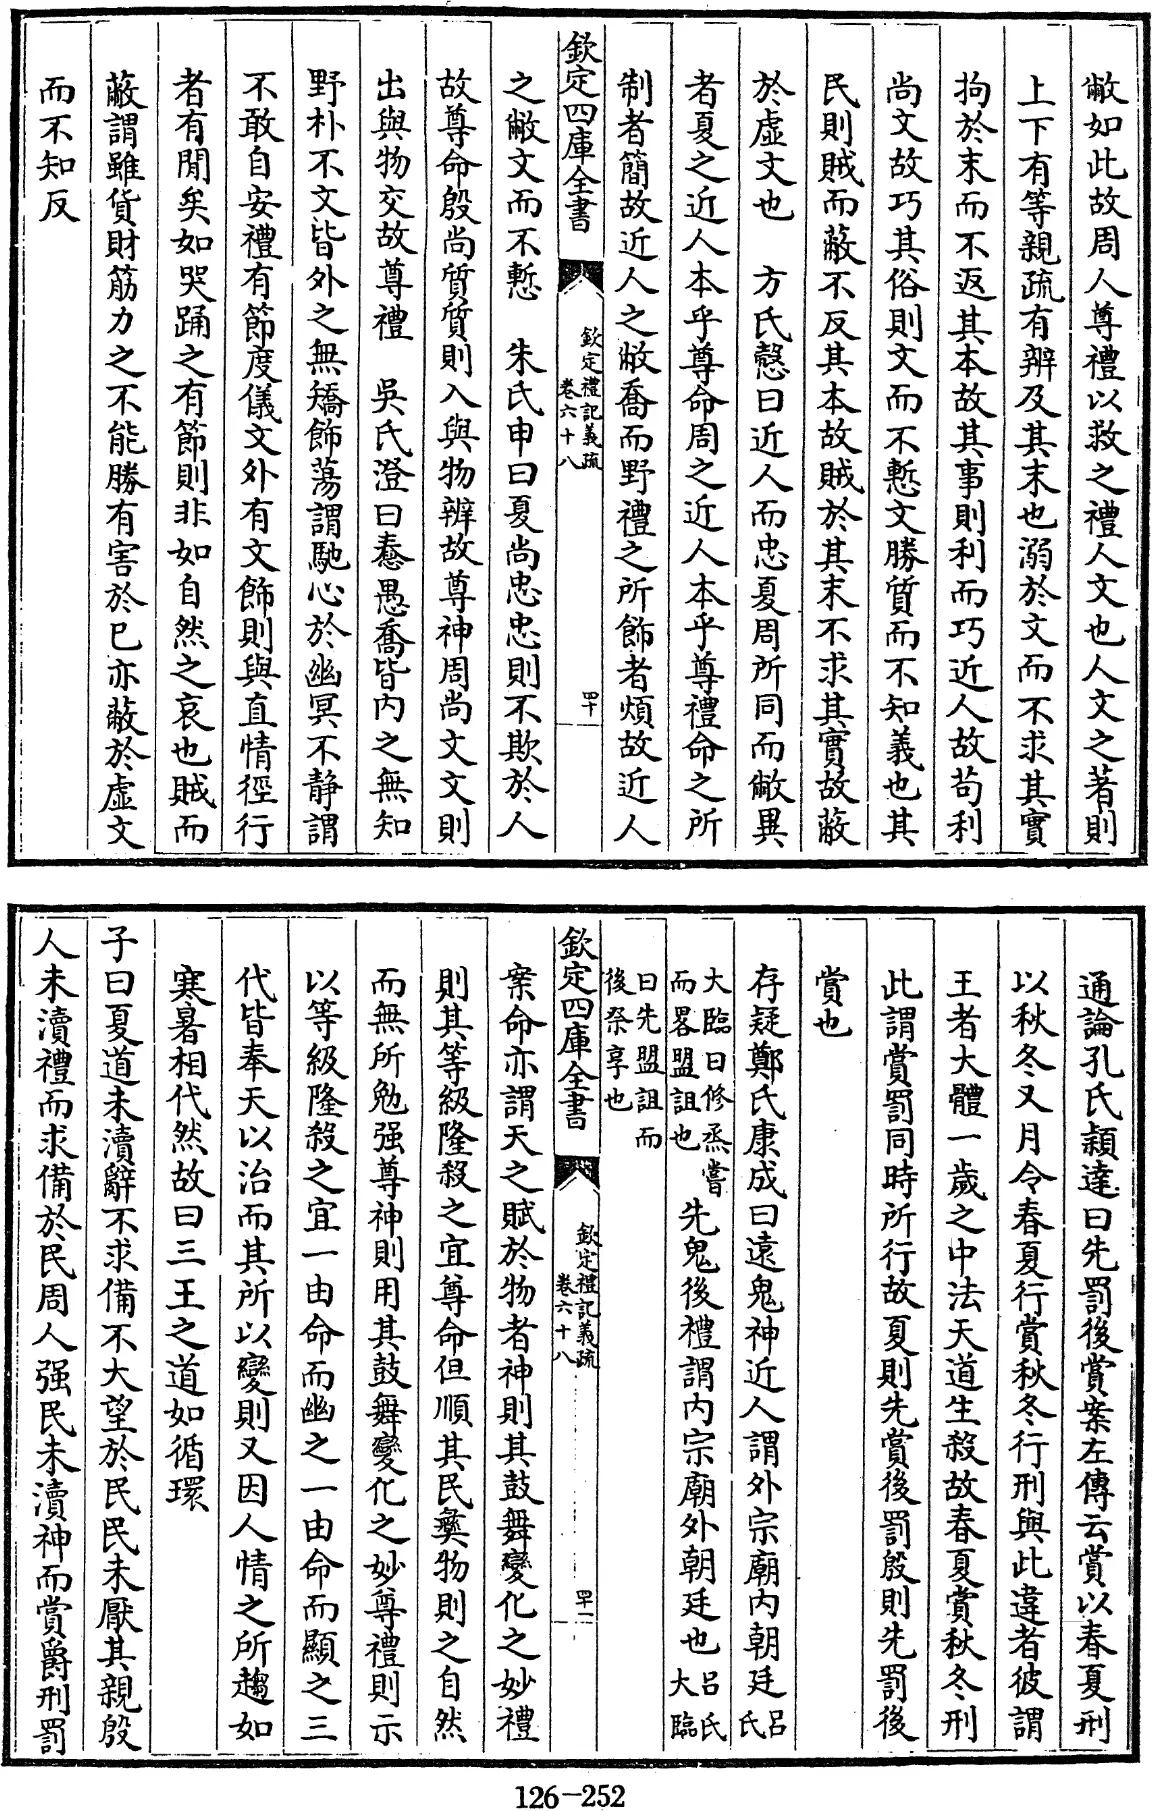 敝如此故周人尊禮以救之禮人文也人文之著則
上下有等親疏有辨及其末也溺於文而不求其實
拘於末而不返其本故其事則利而巧近人故苟利
尚文故巧其俗則文而不慙文勝質而不知義也其
民則賊而蔽不反其本故賊於其末不求其實故蔽
於虛文也　方氏慤曰近人而忠夏周所同而敝異
者夏之近人本乎尊命周之近人本乎尊禮命之所
制者簡故近人之敝喬而野禮之所飾者煩故近人
欽定四庫全書　欽定禮記義疏　卷六十八　四十
之敝文而不慙　朱氏申曰夏尚忠忠則不欺於人
故尊命殷尚質質則入與物辨故尊神周尚文文則
出與物交故尊禮　吳氏澄曰惷愚喬皆內之無知
野朴不文皆外之無矯飾蕩謂馳心於幽冥不静謂
不敢自安禮有節度儀文外有文飾則與直情徑行
者有閒矣如哭踊之有節則非如自然之哀也賊而
蔽謂雖貨財筋力之不能勝有害於已亦蔽於虛文
而不知反
通論孔氏穎達曰先罰後賞案左傳云賞以春夏刑
以秋冬又月令春夏行賞秋冬行刑與此違者彼謂
王者大體一歲之中法天道生殺故春夏賞秋冬刑
此謂賞罰同時所行故夏則先賞後罰殷則先罰後
賞也
存疑鄭氏康成曰遠鬼神近人謂外宗廟內朝廷呂氏
大臨曰修烝嘗而畧盟詛也先鬼後禮謂內宗廟外朝廷也呂氏大臨
曰先盟詛而後祭享也
欽定四庫全書　欽定禮記義疏　卷六十八　四十一
案命亦謂天之賦於物者神則其鼓舞變化之妙禮
則其等級隆殺之宜尊命但順其民彝物則之自然
而無所勉强尊神則用其鼓舞變化之妙尊禮則示
以等級隆殺之宜一由命而幽之一由命而顯之三
代皆奉天以治而其所以變則又因人情之所趨如
寒暑相代然故曰三王之道如循環
子曰夏道未瀆辭不求備不大望於民民未厭其親殷
人未瀆禮而求備於民周人强民未瀆神而賞爵刑罰
126-252